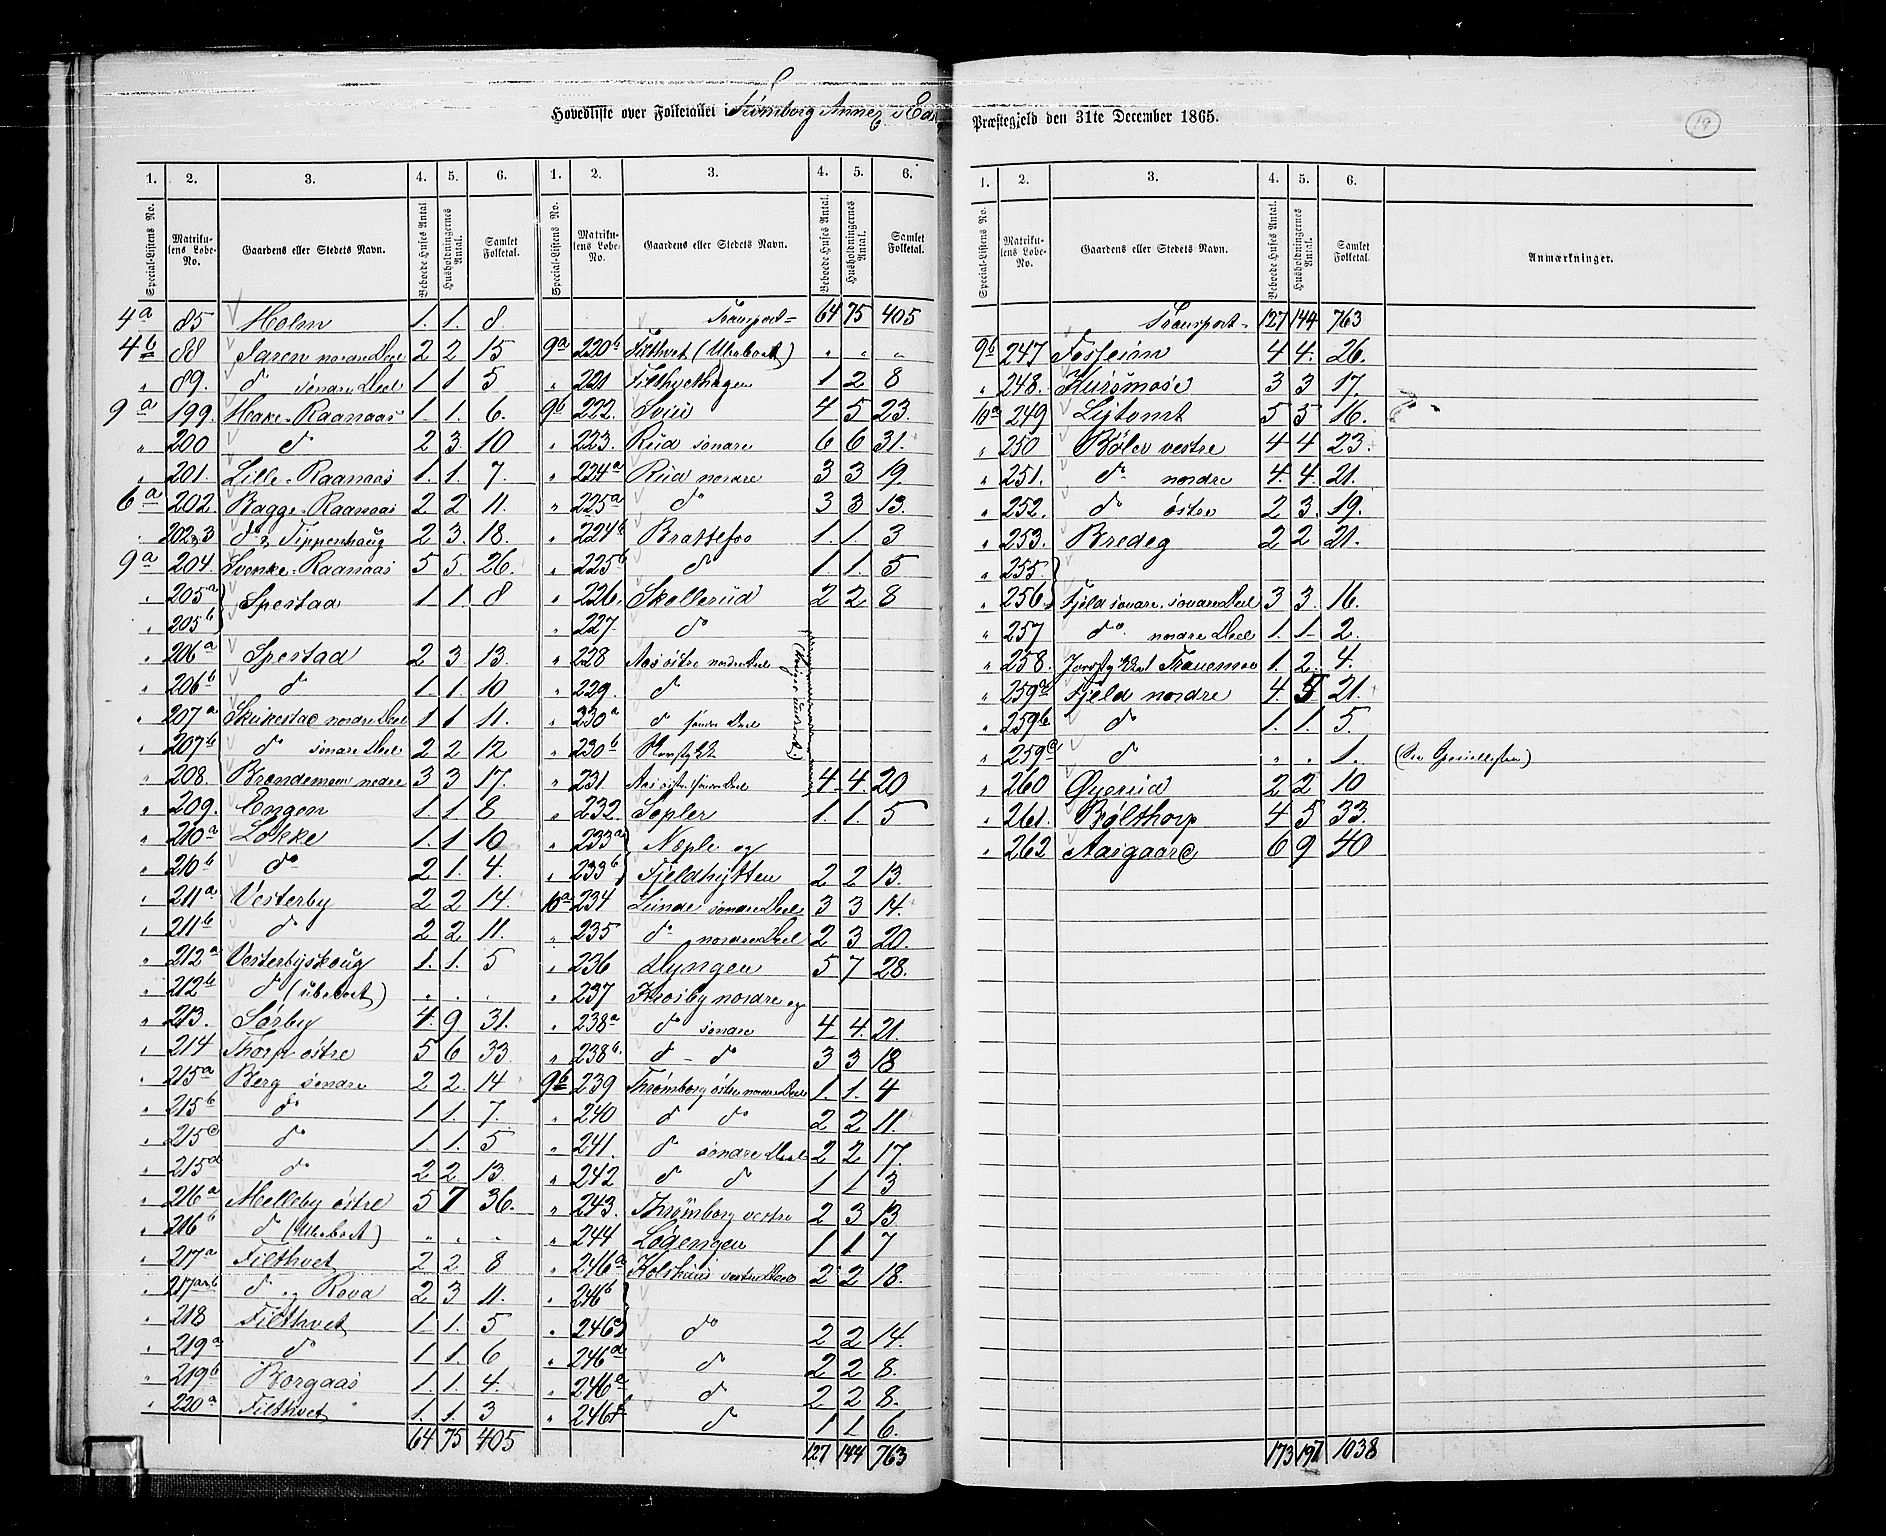 Hovedliste over Folketallet i Trømborg Annex i
Præstegjeld den 31te December 1865.
19
1. 2. 3. 4. 5. 6. 1. 2. 3. 4. 5. 6.
Special-Listens No. Matrikulens Løbe-No. Gaardens eller Stedets Navn. Beboede Huses Antal Husholdningernes Antal. Samlet Folketal. Special-Listens No. Matrikulens Løbe-No. Gaardens eller Stedets Navn. Beboede Huses Antal. Husholdningernes Antal. Samlet Folketal.
4a 85 Holm 1. 1. 8
4b 88 Jaren nordre Deel 2 2 15
" 89. do søndre Deel 1 1 5
9a 199. Hake-Raanaas 1. 1. 6.
" 200 do 2 3. 10
" 201. Lille-Raanaas 1. 1. 7.
6a 202. Bagge-Raanaas 2 2 11.
" 202 & 3 do & Tippenhaug 2 3. 18.
9a 204. Svenke-Raanaas 5 5. 26.
" 205a } Spestad 1 1. 8
" 205b
" 206a Spestad 2 3 13.
" 206b do 1. 1. 10
" 207a Skeikestad nordre Deel 1 1 11.
" 207b do søndre Deel 2 2 12
" 208. Brændemoen nedre 3 3 17.
" 209. Engen 1. 1 8
" 210a Løkke 1. 1. 10
" 210b do 2 1. 4.
" 211a Vesterby 2 2 14.
" 211b do 2 2 11.
" 212a Vesterbyskoug 1. 1. 5
" 212b do (ubeboet) " " "
" 213. Sørby 4. 9 31.
" 214 Thorp østre 5 6 33.
" 215a Berg søndre 2 2. 14
" 215b do 1 1. 7.
" 215c do 1. 1. 5
" 215d do 2 2 13.
" 216a Melleby østre 5 7 36.
" 216b do (Ubeboet) " " "
" 217a Filthvet 2 2 8
" 217a b do " Rova 2 3 11.
" 218 Filthvet 1. 1. 5
" 219a do 1 1. 6
" 219b Borgaas 1. 1. 4.
" 220a Filthvet 1. 1. 3
64 75 405
Transport- 64 75 405
9a 220b Filthvet (Ubeboet) " " "
" 221 Filthvethagen 1 2 8
9b 222. Sviu 4 5 23.
" 223. Rud søndre 6 6 31.
" 224a Rud nordre 3 3 19.
" 225a do 3 3 13.
" 224b Brattefos 1. 1. 3
" 225b do 1. 1. 5
" 226. Skollerud 2 2 8
" 227. do
" 228 Aas østre nordre Deel
" 229. do
" 230a do søndre Deel
" 230b
" 231 Aas østre søndre Deel 4 4. 20
" 232. Sopler 1. 1. 5
" 233a } Nople og
" 233b Fjeldhytten 2 2 13.
10a 234 Lunde søndre Deel 3 3 14.
" 235 do nordre Deel 2 3 20.
" 236 Dyngen 5 7 28.
" 237 Krosby nordre og
" 238a do søndre 4 4. 21.
" 238b. do - do 3 3 18
9b 239 Thrømborg østre nordre Deel 1. 1. 4
" 240 do do 2 2 11.
" 241. do søndre Deel 2 2 17.
" 242 do do 1 1 3
" 243. Thrømborg vestre 2 3 13.
" 244 Løgengen 1 1 7
" 246a Kolshuus vestre Deel 2 2 18.
" 246b }
" 246c do 2 2 14.
" 246d do 2 2 8.
" 246e do 2 2 8.
" 246f do 1 1 6.
127 144 763
1. 2. 3. 4. 5. 6.
Special-Listens No. Matrikulens Løbe-No. Gaardens eller Stedets Navn. Beboede Huses Antal. Husholdningernes Antal. Samlet Folketal. Anmærkninger.
Transport- 127 144 763
9b 247 Fosseim 4 4. 26.
" 248. Huusmose 3 3 17.
10a 249 Lytomt 5 5 16.
" 250 Bøler vestre 4 4 23.
" 251. do nordre 4. 4. 21.
" 252. do østre 2 3. 19.
" 253. Bredeg 2 2 21.
" 255 }
" 256. Fjeld søndre, søndre Deel 3 3. 16.
" 257 do. nordre Deel 1. 1- 2.
" 258. 1. 2. 4.
" 259a Fjeld nordre 4. 5 21.
" 259b do 1. 1. 5.
" 259c do " " 1. (Se Speciallisten)
" 260 Øyerud 2 2 10
" 261. Bølthorp 4 5 33.
" 262 Aasgaard 6 9 40
173 197 1038